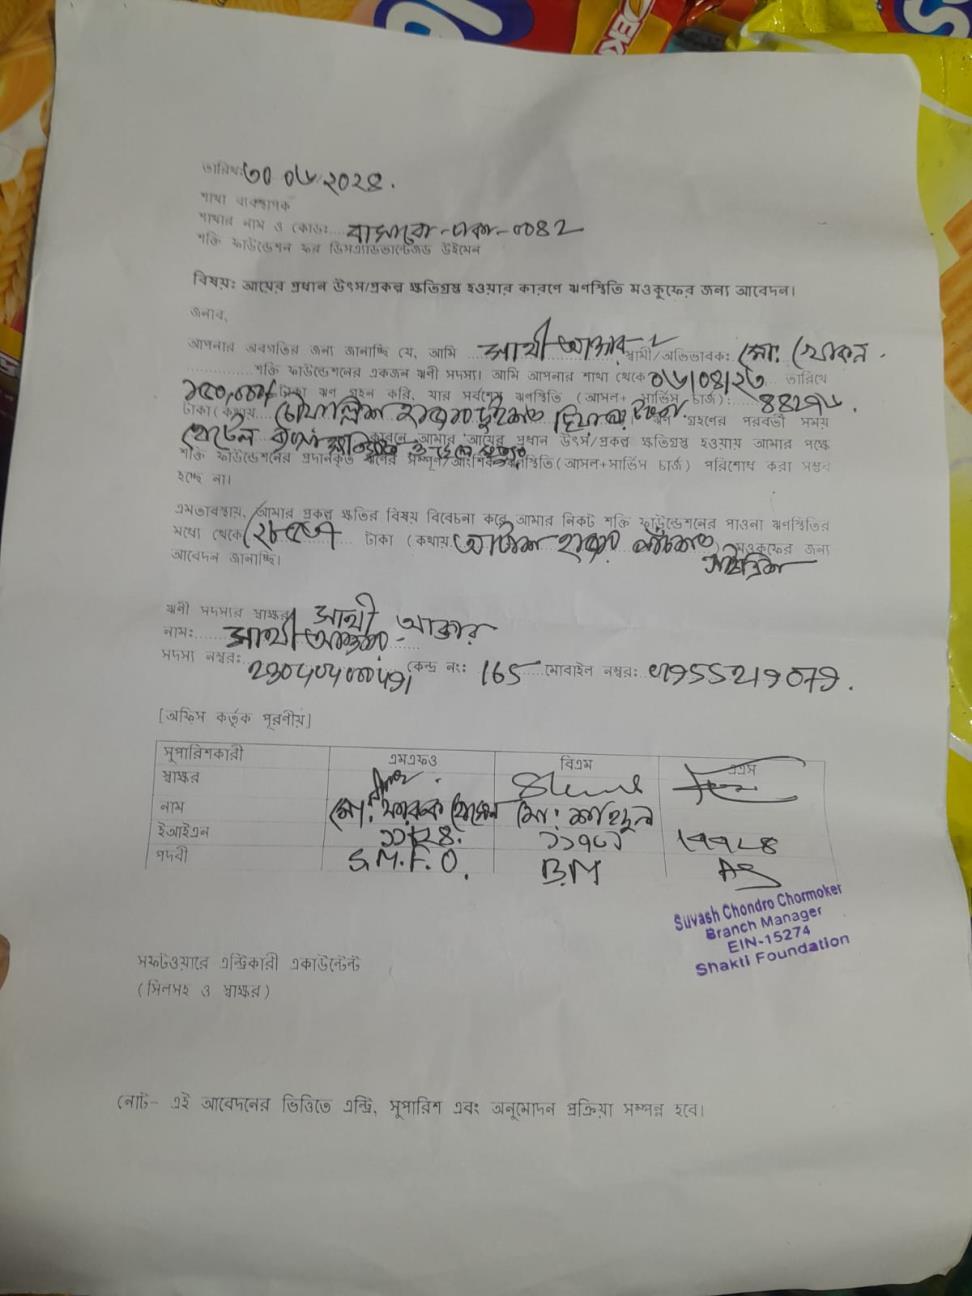 তারিখ: ৩০ ০৬ ২০২৪.
শাখা ব্যবস্থাপক
শাখার নাম ও কোড: বাসাবো-ঢাকা-০০৪২
শক্তি ফাউন্ডেশন ফর ডিসএ্যাডভান্টেজড উইমেন
বিষয়: আয়ের প্রধান উৎস/প্রকল্প ক্ষতিগ্রস্ত হওয়ার কারণে ঋণস্থিতি মওকুফের জন্য আবেদন।
জনাব,
আপনার অবগতির জন্য জানাচ্ছি যে, আমি সাথী আক্তার স্বামী/অভিভাবক: মো: খোকন.
শক্তি ফাউন্ডেশনের একজন ঋণী সদস্য। আমি আপনার শাখা থেকে ০৬/০৪/২৩ তারিখে
১৫০,০০০/ টাকা ঋণ গ্রহন করি, যার সর্বশেষ ঋণস্থিতি (আসল+ সার্ভিস চার্জ):
টাকা (কথায় হাজার দুইশত টাকা ঋণ গ্রহণের পরবর্তী সময়
কারনে আমার আয়ের প্রধান উৎস/প্রকল্প ক্ষতিগ্রস্ত হওয়ায় আমার পক্ষে
শক্তি ফাউন্ডেশনের প্রদানকৃত ঋণের সম্পূর্ণ/আংশিক ঋণস্থিতি(আসল+সার্ভিস চার্জ) পরিশোধ করা সম্ভব
হচ্ছে না।
এমতাবস্থায়, আমার প্রকল্প ক্ষতির বিষয় বিবেচনা করে আমার নিকট শক্তি ফাউন্ডেশনের পাওনা ঋণস্থিতির
মধ্যে থেকে টাকা (কথায় আটাশ হাজার পাঁচশত মওকুফের জন্য
আবেদন জানাচ্ছি।
ঋণী সদস্যর স্বাক্ষর সাথী আক্তার
নাম: সাথী আক্তার
সদস্য নম্বর: কেন্দ্র নং: 165 মোবাইল নম্বর: ০1955219079.
[অফিস কর্তৃক পূরণীয়]
সুপারিশকারী এমএফও বিএম এএস
স্বাক্ষর
নাম মো: ফারুক হোসেন মো: শহিদুল
ইআইএন
পদবী S.M.F.O. B.M AS
Suvash Chondro Chormoker
Branch Manager
EIN-15274
Shakti Foundation
সফটওয়ারে এন্ট্রিকারী একাউন্টেন্ট
(সিলসহ ও স্বাক্ষর)
নোট- এই আবেদনের ভিত্তিতে এন্ট্রি, সুপারিশ এবং অনুমোদন প্রক্রিয়া সম্পন্ন হবে।